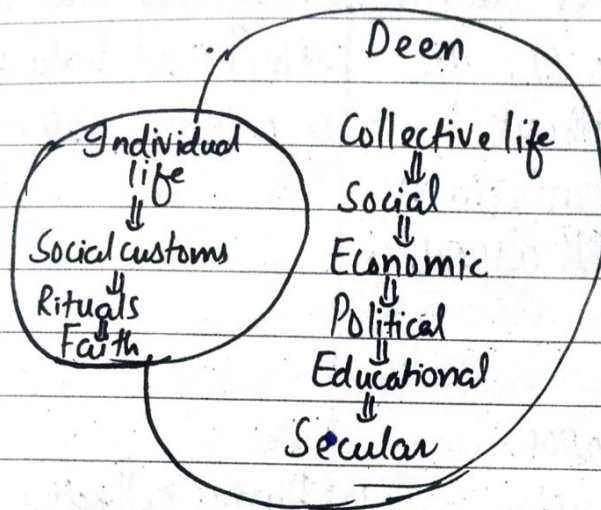 Deen
Individual
life
⇓
Social customs
⇓
Rituals
⇓
Faith
Collective life
⇓
Social
⇓
Economic
⇓
Political
⇓
Educational
⇓
Secular